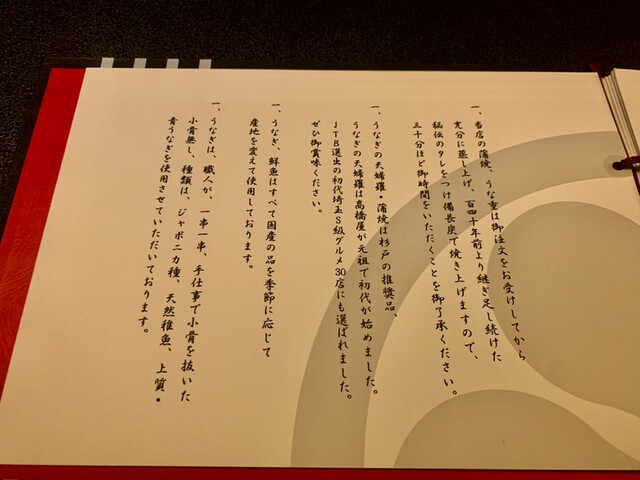 一、当店の蒲焼、うな重は御注文をお受けしてから
充分に蒸し上げ、百四十年前より継ぎ足し続けた
秘伝のタレをつけ備長炭で焼き上げますので、
三十分ほど御時間をいただくことを御了承ください。
一、うなぎの天婦羅・蒲焼は杉戸の推奨品、
うなぎの天婦羅は高橋屋が元祖で初代が始めました。
JTB選出の初代埼玉S級グルメ30店にも選ばれました。
ぜひ御賞味ください。
一、うなぎ、鮮魚はすべて国産の品を季節に応じて
産地を変えて使用しております。
一、うなぎは、職人が、一串一串、手仕事で小骨を抜いた
小骨無し、種類は、ジャポニカ種、天然稚魚、上質・
青うなぎを使用させていただいております。